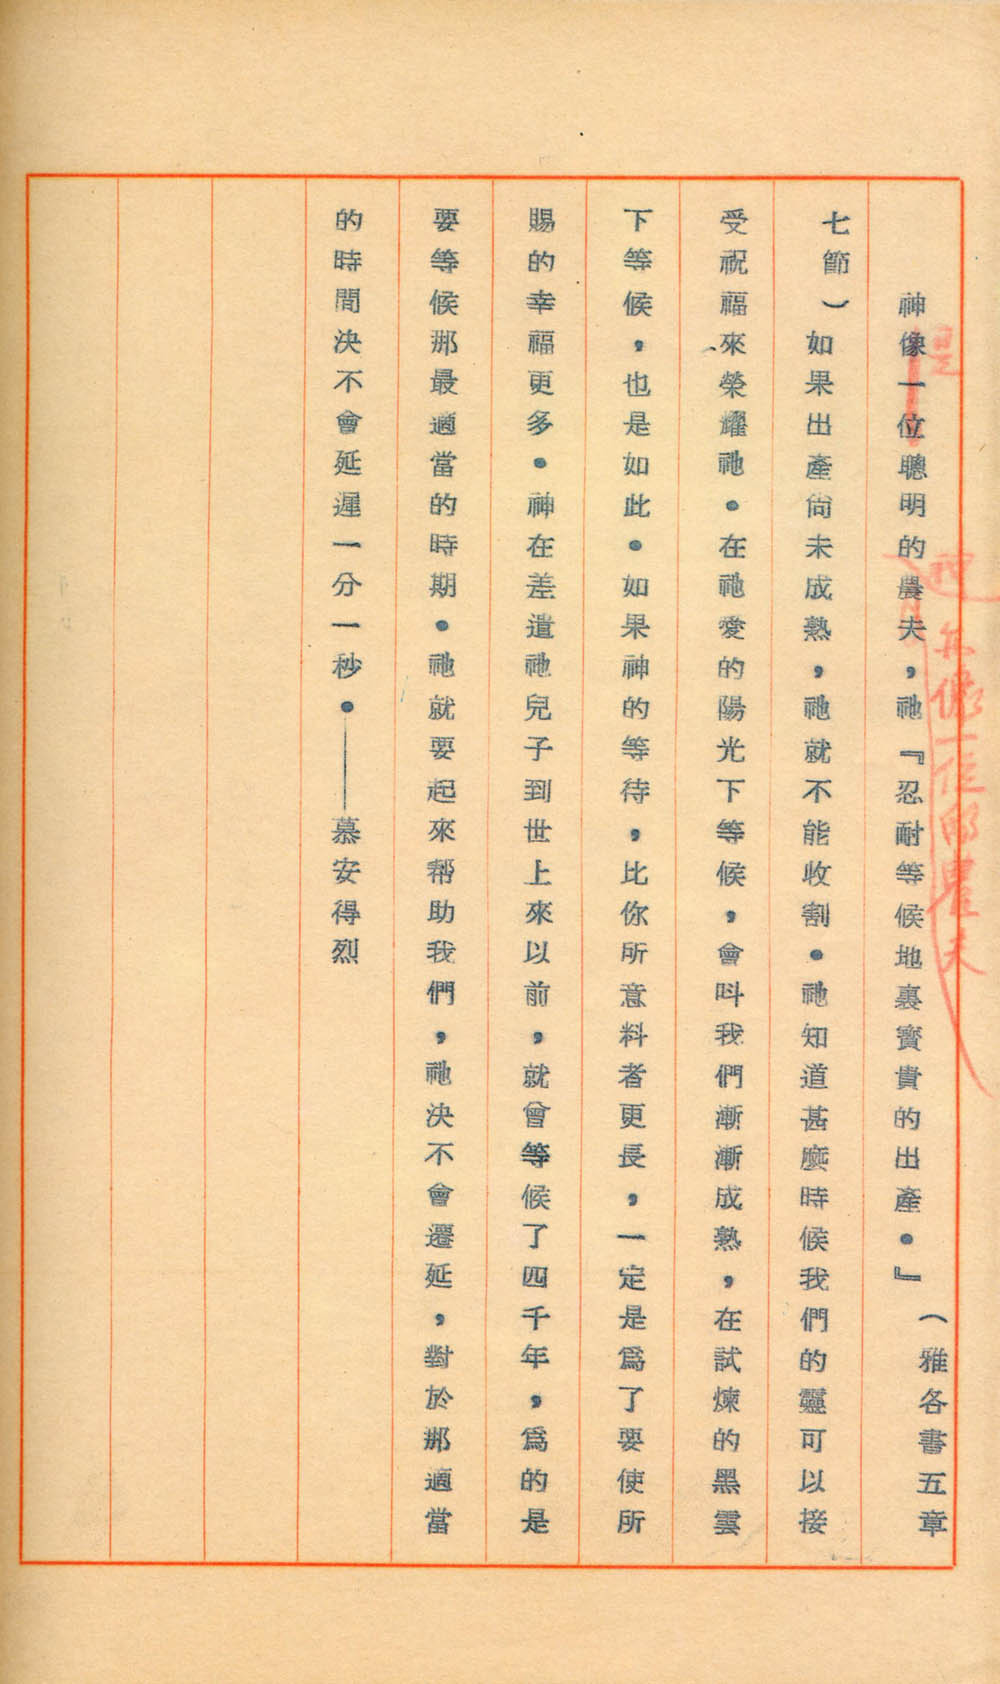 神像一位聰明的農夫，祂『忍耐等候地裏寶貴的出產．』（雅各書五章
七節）如果出產尙未成熟，祂就不能收割．祂知道甚麼時候我們的靈可以接
受祝福來榮耀祂．在祂愛的陽光下等候，會叫我們漸漸成熟，在試煉的黑雲
下等候，也是如此．如果神的等待，比你所意料者更長，一定是爲了要使所
賜的幸福更多．神在差遣祂兒子到世上來以前，就曾等候了四千年，爲的是
要等候那最適當的時期．祂就要起來幫助我們，祂決不會遷延，對於那適當
的時間決不會延遲一分一秒．——慕安得烈
是
神
像一位
農夫